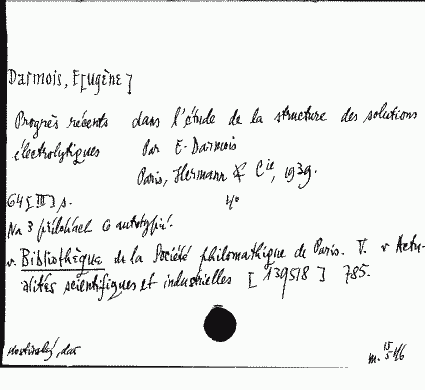 Darmois, E[ugène]
Progrès récents dans l'étude de la structure des solutions
électrolytiques Par E. Darmois
Paris, Hermann & Cie, 1939.
64 [III] s. 4°
Na 3 přílohách 6 autotypií.
v. Bibliothèque de la Société philomathique de Paris. V. v Actu-
alités scientifiques et industrielles [139518] 785.
dar
m. 15/5 46